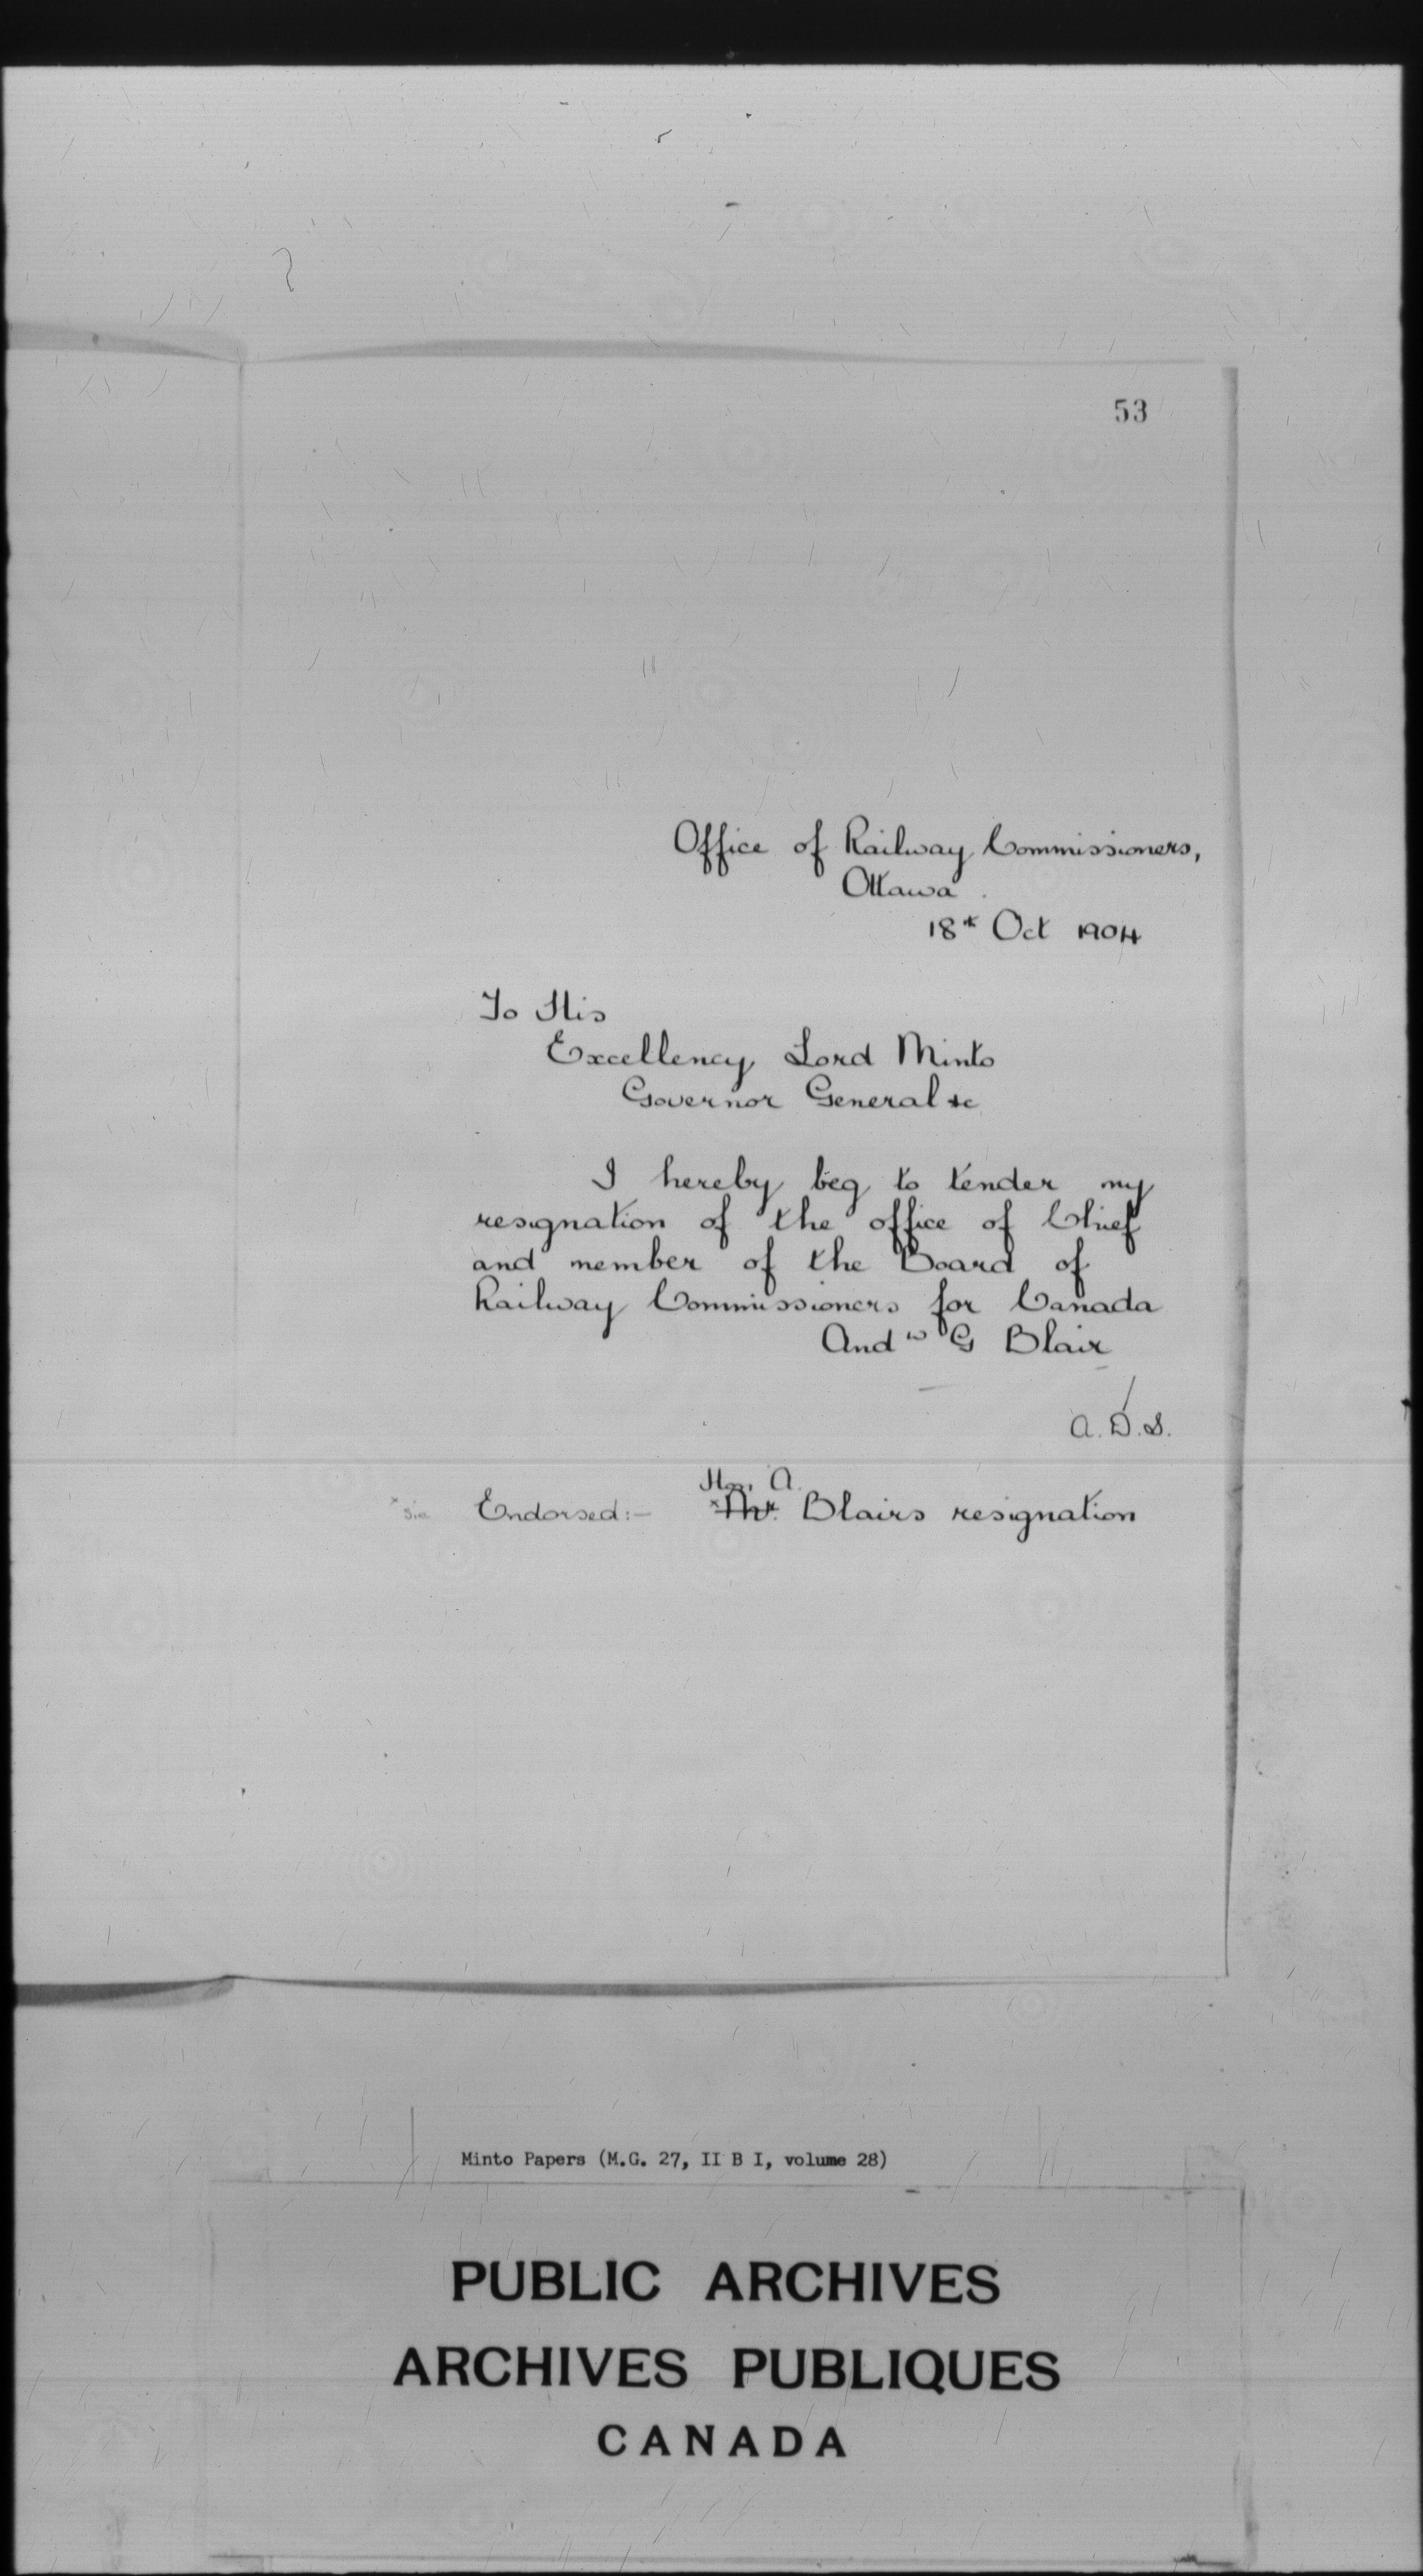 53
Office of Railway Commissioners,
Ottawa.
18th Oct 1904
To His
Excellency Lord Minto
Governor General &c
I hereby beg to tender my
resignation of the office of Chief
and member of the Board of
Railway Commissioners for Canada
Andw G Blair
A.D.S.
Hon. A.
x sic Endorsed:- x Mr. Blairs resignation
Minto Papers (M.G. 27, II B I, volume 28)
PUBLIC ARCHIVES
ARCHIVES PUBLIQUES
CANADA